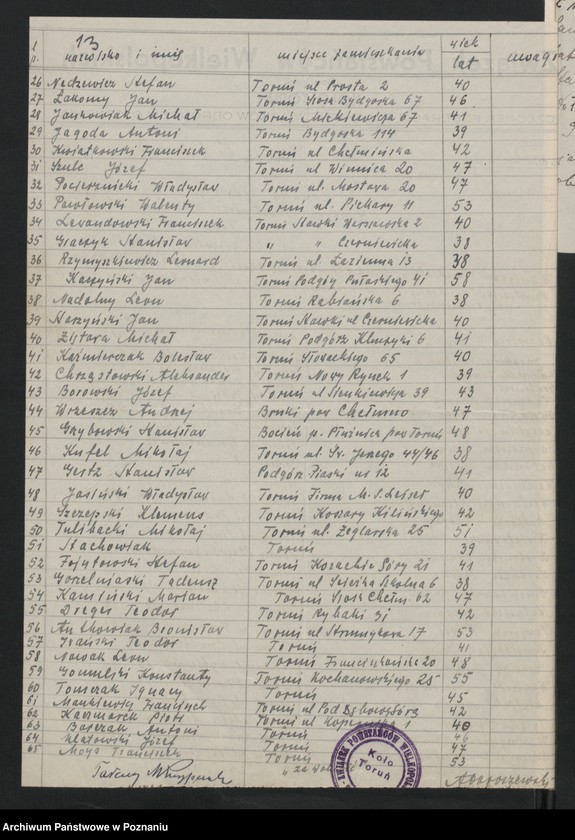 13
l. nazwisko i imię miejsce zamieszkania wiek uwagi
p. lat
26 Nadzewicz Stefan Toruń ul Prosta 2 40
27 Żakomy Jan Toruń Szosa Bydgoska 67 46
28 Jankowiak Michał Toruń Mickiewicza 67 41
29 Jagoda Antoni Toruń Bydgoska 114 39
30 Kwiatkowski Franciszek Toruń ul Chełmińska 42
31 Szulc Józef Toruń ul Winnica 20 47
32 Władysław Toruń ul. Mostowa 20 47
33 Pawłowski Walenty Toruń ul. Piekary 11 53
34 Lewandowski Franciszek Toruń Stawki Warszawska 2 40
35 Graczyk Stanisław " " Czerniewicka 38
36 Rzymyszkiewicz Leonard Toruń ul. Łazienna 13 38
37 Kaczyński Jan Toruń Podgórz Pułaskiego 41 58
38 Nadolny Leon Toruń Rabiańska 6 38
39 Jan Toruń Stawki ul Czerniewicka 40
40 Michał Toruń Podgórz 6 41
41 Kaźmierczak Bolesław Toruń Słowackiego 65 40
42 Chrząstowski Aleksander Toruń Nowy Rynek 1 39
43 Borowski Józef Toruń ul Sienkiewicza 39 43
44 Wrzeszcz Andrzej pow Chełmno 47
45 Grybowski Stanisław Bocień p. Płużnica pow Toruń 48
46 Kufel Mikołaj Toruń ul. Św. Jerzego 44/46 38
47 Gertz Stanisław Podgórz Piaski nr 12 41
48 Jasiński Władysław Toruń Firma M. S. Leiser 40
49 Szczepski Klemens Toruń Koszary Kilińskiego 42
50 Tulibacki Mikołaj Toruń ul. Żeglarska 25 51
51 Stachowiak Toruń 39
52 Fojutowski Stefan Toruń Kozackie Góry 21 41
53 Gorzelniaski Tadeusz Toruń ul Ścieżka Szkolna 6 38
54 Kamiński Marian Toruń Szosa Chełm 62 47
55 Dreger Teodor Toruń Rybaki 31 42
56 Antkowiak Bronisław Toruń ul Strumykowa 17 53
57 Teodor Toruń 41
58 Nowak Leon Toruń Franciszkańska 20 48
59 Gomulski Konstanty Toruń Kochanowskiego 25 55
60 Tomczak Ignacy Toruń 45
61 Mankiewicz Franciszek Toruń ul Pod Dębową Górą 42
62 Kaczmarek Piotr Toruń ul Kopernika 1 40
63 Antoni Toruń 46
64 Józef Toruń 47
65 Moya Franciszek Toruń 53
ZWIĄZEK POWSTAŃCÓW WIELKOPOL
Koło
Toruń
Archiwum Państwowe w Poznaniu